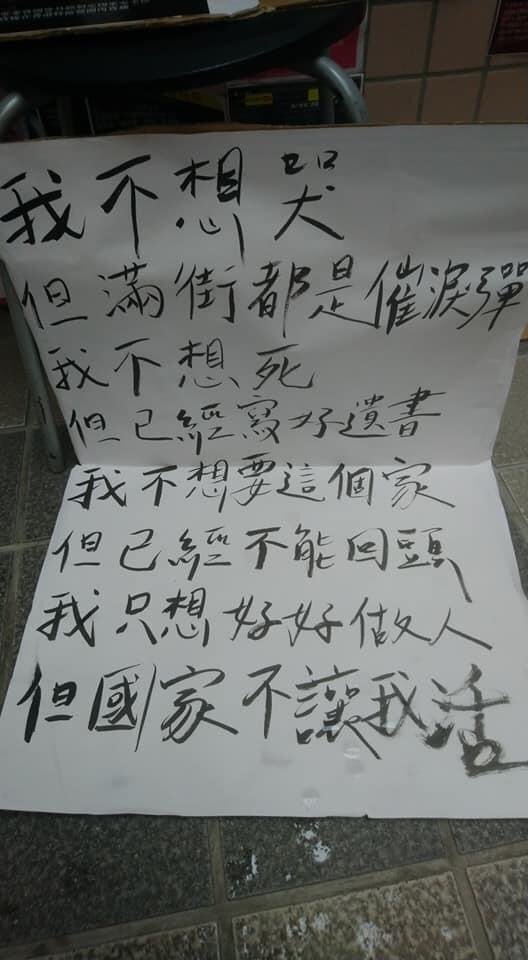 我不想哭
但滿街都是催淚彈
我不想死
但已經寫好遺書
我不想要這個家
但已經不能回頭
我只想好好做人
但國家不讓我活